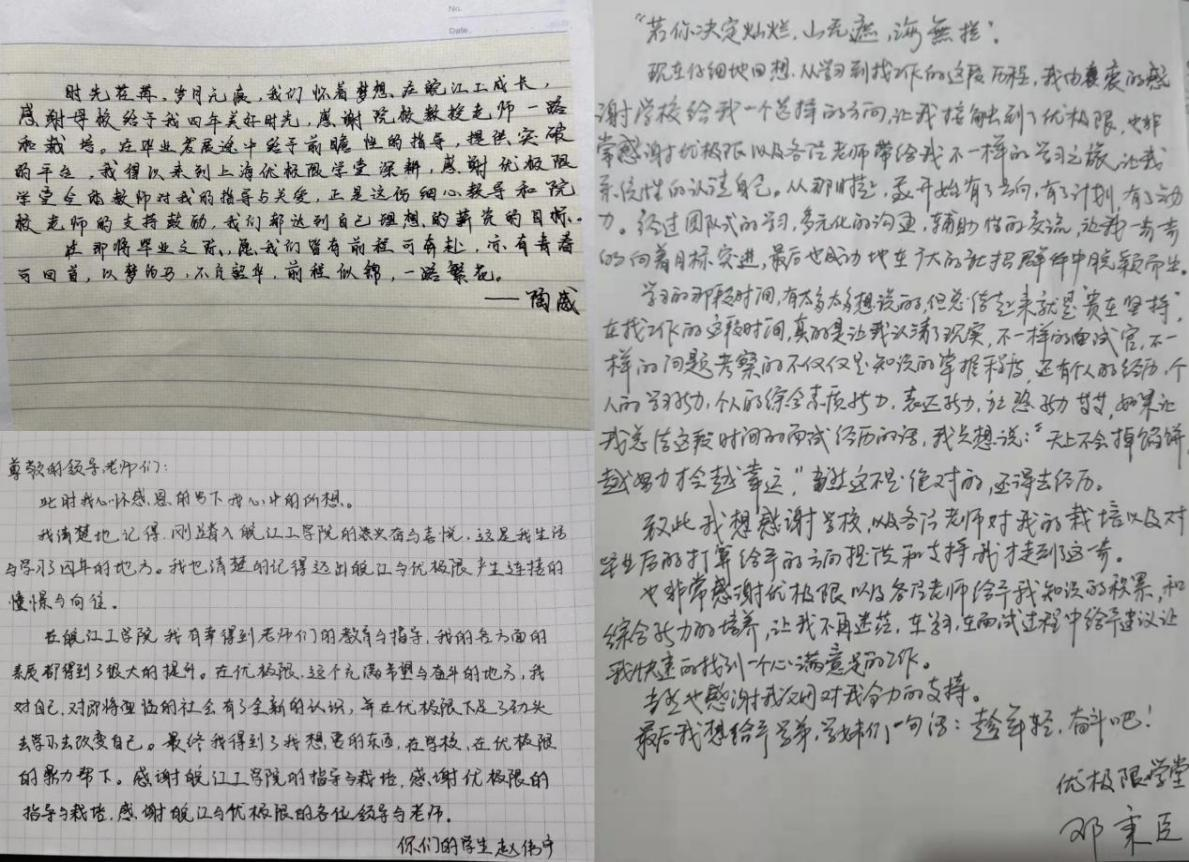 No.
Date.
时光荏苒，岁月无痕，我们怀着梦想在皖江工成长，
感谢母校给予我四年美好时光，感谢院校教授老师一路
和栽培。在毕业发展途中给于前瞻性的指导，提供突破
的平台，我得以来到上海优极限学堂深耕，感谢优极限
学堂全体教师对我的指导与关爱，正是这份细心教导和院
校老师的支持鼓励，我们都达到自己理想的薪资的目标。
在即将毕业之际，愿我们皆有前程可奔赴，亦有青春
可回首，以梦为马，不负韶华，前程似锦，一路繁花。
——陶威
尊敬的领导老师们：
此时我心怀感恩的写下我心中的所想。
我清楚地记得刚踏入皖江工学院的兴奋与喜悦，这是我生活
与学习了四年的地方。我也清楚的记得迈出皖江与优极限产生连接的
憧憬与向往。
在皖江工学院我有幸得到老师们的教育与指导，我的各方面的
素质都得到了很大的提升。在优极限，这个充满希望与奋斗的地方，我
对自己，对即将面临的社会有了全新的认识，并在优极限下足了劲头
去学习去改变自己。最终我得到了我想要的东西，在学校，在优极限
的鼎力帮下。感谢皖江工学院的指导与栽培，感谢优极限的
指导与栽培，感谢皖江与优极限的各位领导与老师。
你们的学生赵伟宁
“若你决定灿烂，山无遮，海無拦”。
现在仔细地回想，从学习到找工作的这段历程，我由衷的感
谢学校给我一个选择的方向，让我接触到了优极限，也非
常感谢优极限以及各位老师带给我不一样的学习之旅，让我
系统性的认识自己。从那时起，我开始有了方向，有了计划，有了动
力。经过团队式的学习，多元化的沟通，辅助性的交流，让我一步步
的向着目标突进，最后也成功地在广大的社招群体中脱颖而生。
学习的那段时间，有太多太多想说的，但总结起来就是“贵在坚持”，
在找工作的这段时间，真的是让我认清了现实，不一样的面试官，不一
样的问题考察的不仅仅是知识的掌握程度，还有个人的经历，个
人的学习能力，个人的综合素质能力，表达能力，社恐能力等等，如果让
我总结这段时间的面试经历的话，我只想说：“天上不会掉馅饼，
越努力才会越幸运”，当然这不是绝对的，还得去经历。
致此我想感谢学校，以及各位老师对我的栽培以及对
毕业后的打算给予的方向提供和支持我才走到了这一步。
也非常感谢优极限以及各位老师给予我知识的积累，和
综合能力的培养，让我不再迷茫，在学习，在面试过程中给予建议让
我快速的找到一个心满意足的工作。
当然也感谢我父母对我全力的支持。
最后我想给予学弟，学妹们一句话：趁年轻，奋斗吧！
优极限学堂
邓秉臣